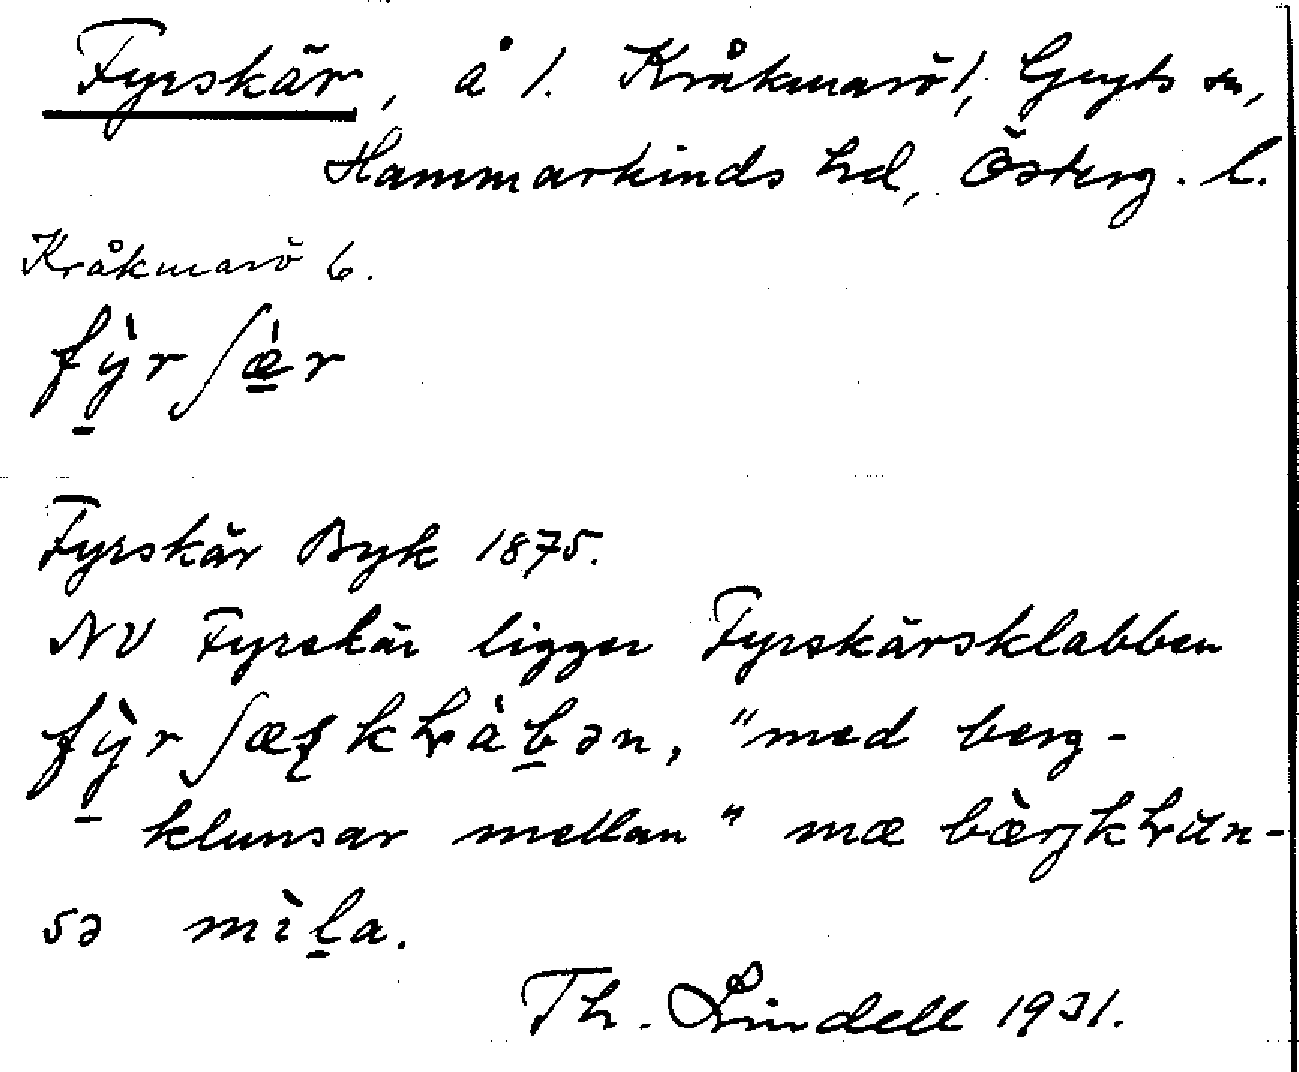 Fyrskär, å /. Kråkmarö /, Gryts sn,
Hammarkinds hd, Österg. l.
Kråkmarö 6.
fỳ̱rʃæ̱̀r
Fyrskär Byk 1875.
NV Fyrskär ligger Fyrskärsklabben
fỳ̱rʃæʂkɫàḇən, "med berg-
klunsar mellan" mæ bæ̀rjkɫun-
sə mìḻa.
Th. Lindell 1931.